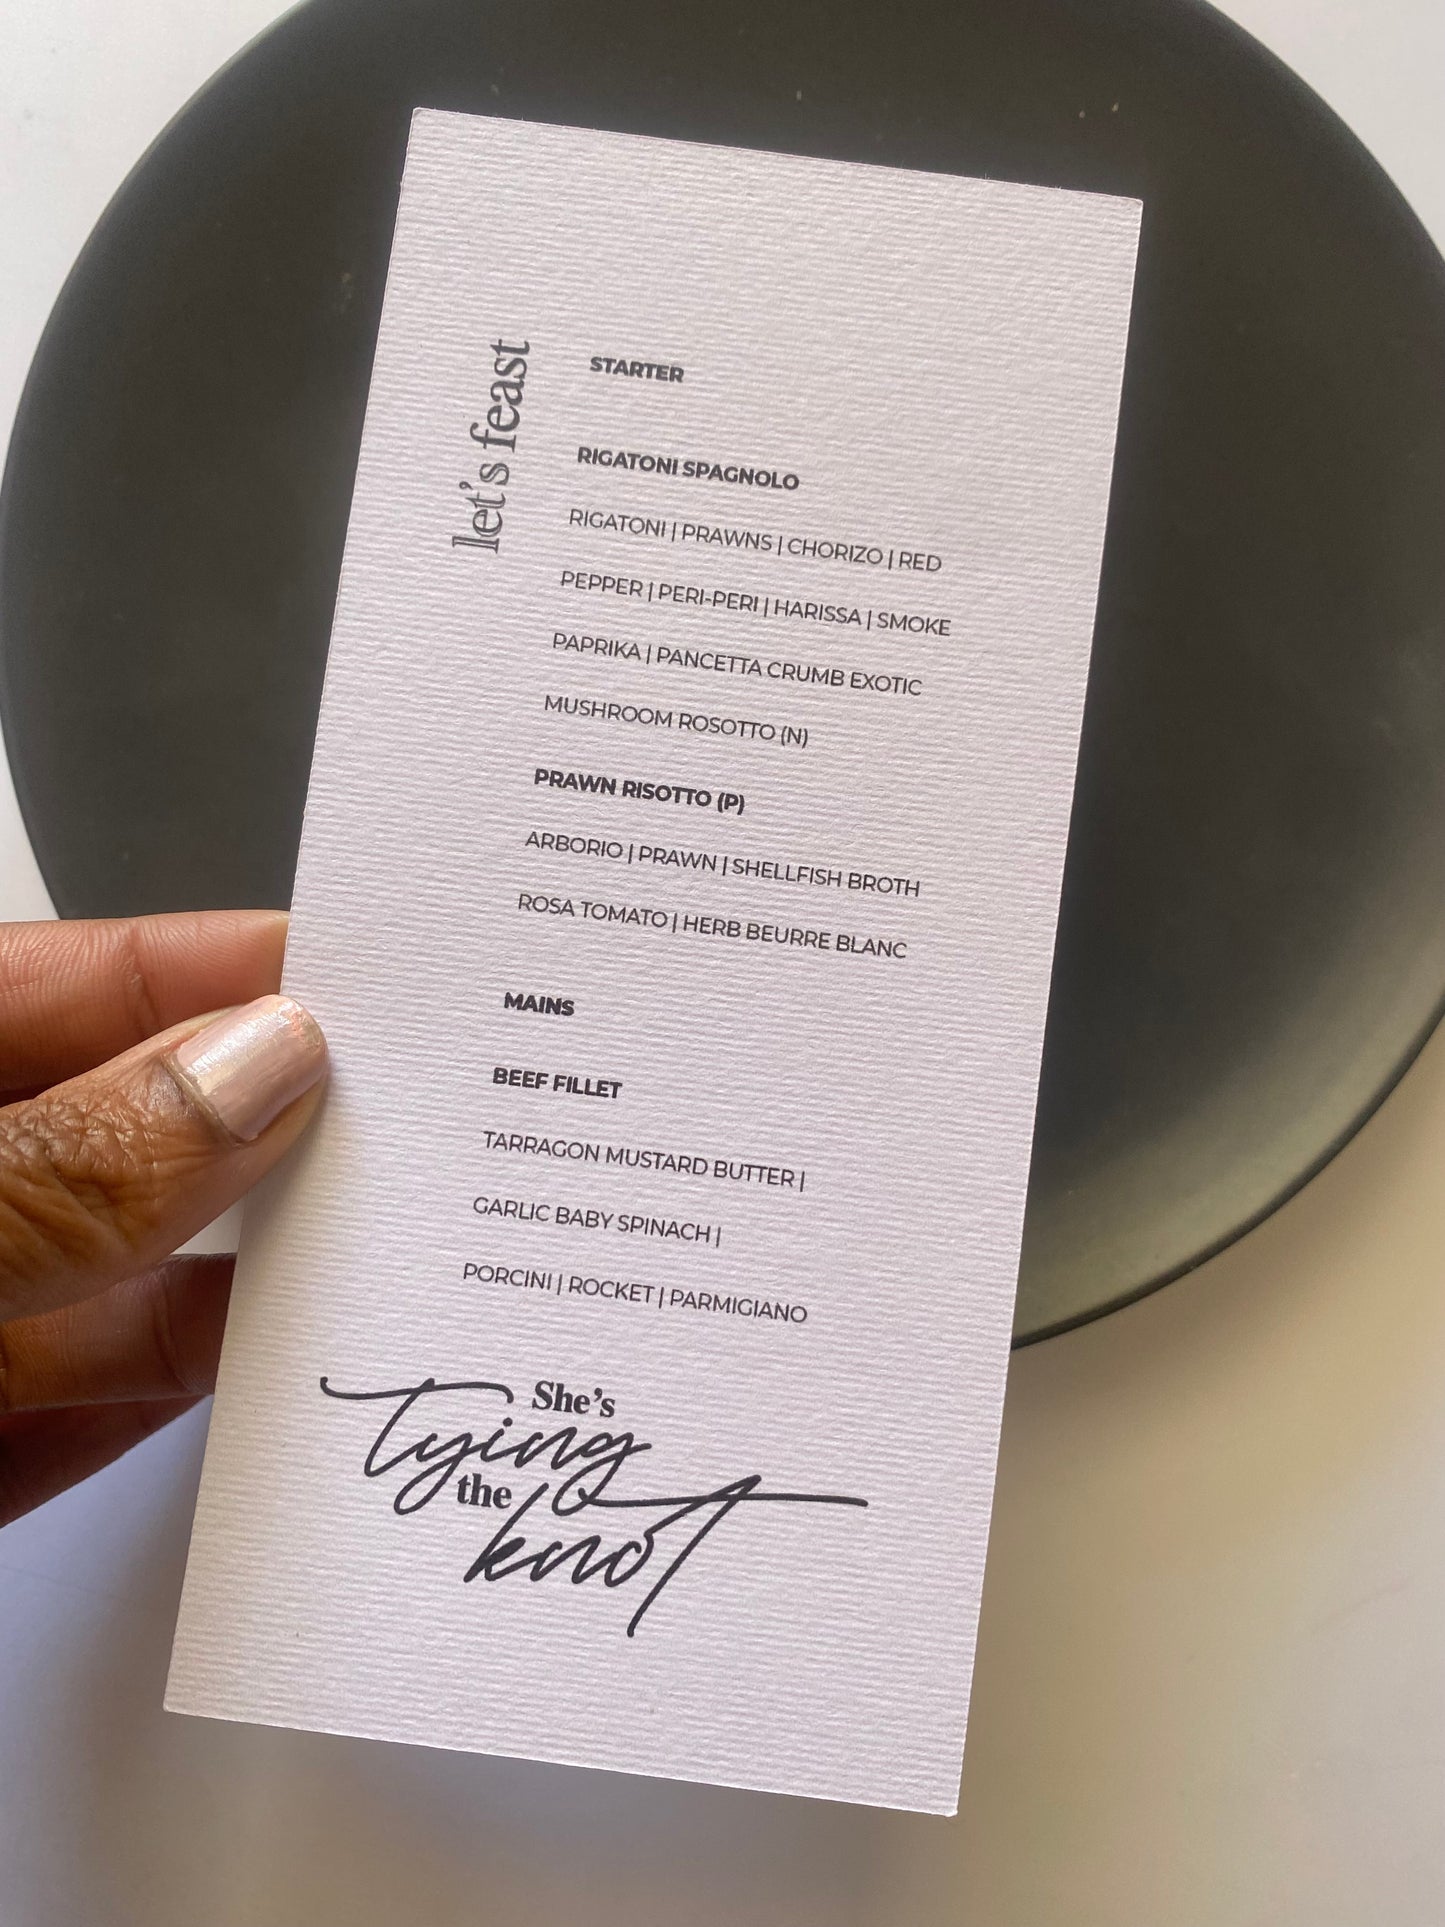 let's feast
STARTER
RIGATONI SPAGNOLO
RIGATONI | PRAWNS | CHORIZO | RED
PEPPER | PERI-PERI | HARISSA | SMOKE
PAPRIKA | PANCETTA CRUMB EXOTIC
MUSHROOM ROSOTTO (N)
PRAWN RISOTTO (P)
ARBORIO | PRAWN | SHELLFISH BROTH
ROSA TOMATO | HERB BEURRE BLANC
MAINS
BEEF FILLET
TARRAGON MUSTARD BUTTER |
GARLIC BABY SPINACH |
PORCINI | ROCKET | PARMIGIANO
She's
Tying
the
knot